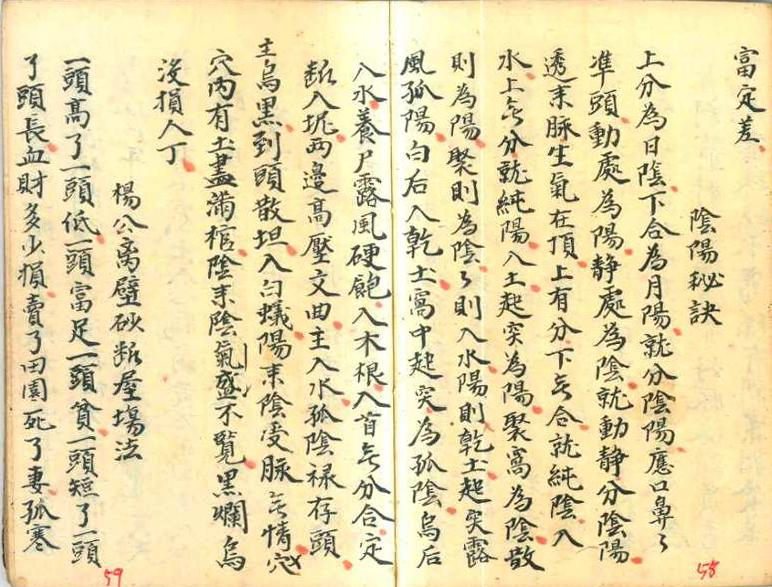 富定差
陰陽秘訣
上分為日陰下合為月陽就分陰陽應口鼻々
準頭動處為陽静處為陰就動静分陰陽
透来脉生氣在頂上有分下旡合就純陰入
水上旡分就純陽入土起突為陽聚窩為陰散
則為陽聚則為陰々則入水陽則乾土起突露
風孤陽白后入乾土窩中起突為孤陰烏后
入水養尸露風硬飽入木根入首旡分合定
斷入坭两邊高壓文曲主入水孤陰禄存頭
主烏黑到頭散坦入白蟻陽来陰受脉旡情穴
穴内有土盡满棺陰来陰氣盛不覽黑爛烏
沒損人丁
楊公离壁砂斷屋塲法
一頭高了一頭低一頭富足一頭貧一頭短了一頭
了頭長血財多少損賣了田園死了妻孤寒
58
59